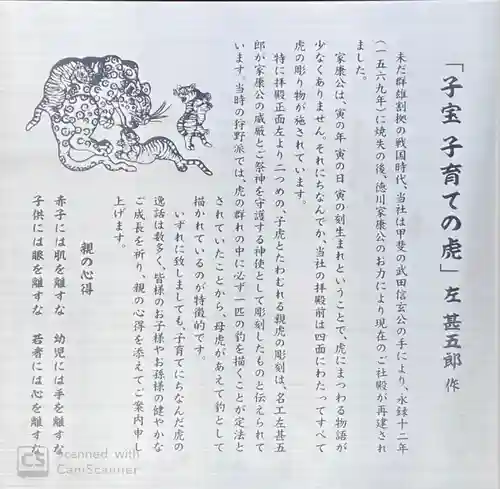 「子宝 子育ての虎」 左 甚五郎 作
未だ群雄割拠の戦国時代、当社は甲斐の武田信玄公の手により、永録十二年
(一五六九年)に焼失の後、徳川家康公のお力により現在のご社殿が再建され
ました。
家康公は、寅の年 寅の日 寅の刻生まれということで、虎にまつわる物語が
少なくありません。それにちなんでか、当社の拝殿前は四面にわたってすべて
虎の彫り物が施されています。
特に拝殿正面左より二つめの、子虎とたわむれる親虎の彫刻は、名工左甚五
郎が家康公の威厳とご祭神を守護する神使として彫刻したものと伝えられて
います。当時の狩野派では、虎の群れの中に必ず一匹の豹を描くことが定法と
されていたことから、母虎があえて豹として
描かれているのが特徴的です。
いずれに致しましても、子育てにちなんだ虎の
逸話は数多く、皆様のお子様やお孫様の健やかな
ご成長を祈り、親の心得を添えてご案内申し
上げます。
親の心得
赤子には肌を離すな 幼児には手を離すな
子供には眼を離すな 若者には心を離すな
CS Scanned with
CamScanner